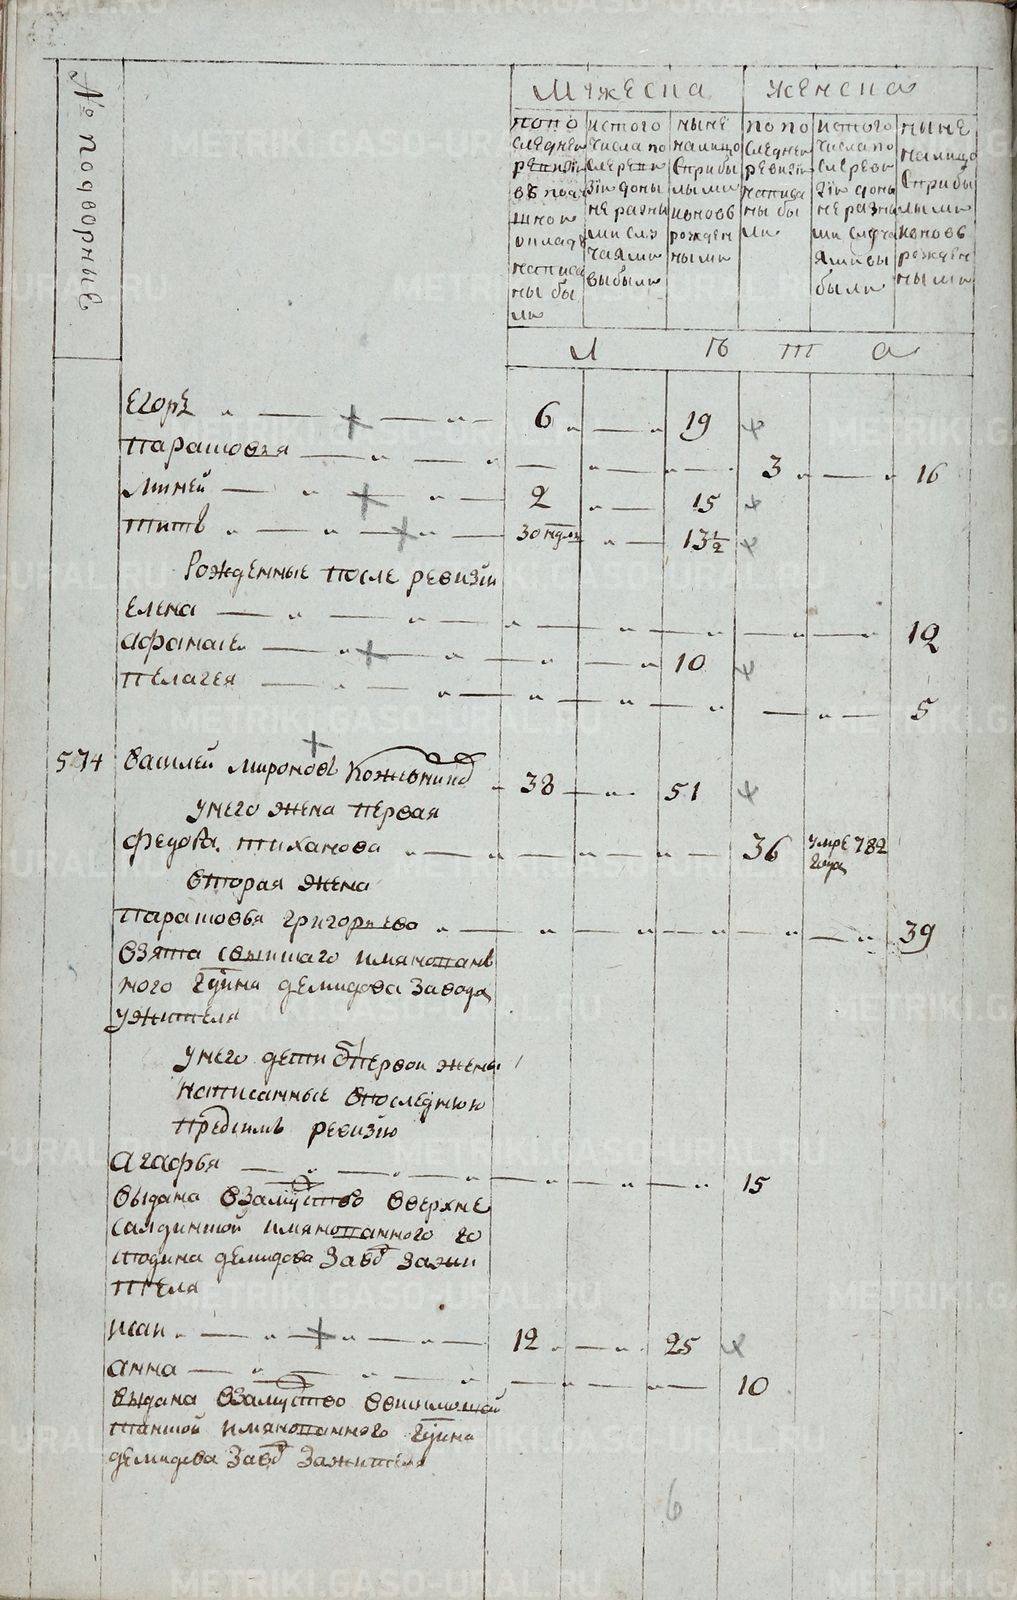 № подворные
Мужеска
женска
попо
следней
ревизїи
въ под
шной
окладъ
написа
ны бы
ли
истого
числа по
сле реви
зїи доны
не разны
ми слу
чаями
выбыли
ныне
налицо
сприбы
лыми
ивновь
рожден
ными
по по
следней
ревизїи
написа
ны бы
ли
истого
числа по
сле реви
зїи доны
не разны
ми случа
ями вы
были
ныне
налицо
сприбы
лыми
ивновь
рожден
ными
лѣта
Егоръ 6 19
парасковья 3 16
2 15
титъ 30 недль 13½
Рожденные после ревизїи
елена 12
афанасеи 10
пелагея 5
574 василей мироновъ Кожевниковъ 38 51
унего жена первая
федося тиханова 36 умре 782
года
вторая жена
парасковья григорьева 39
взята свышшаго имянован
ного Гдина демидова завода
ужителя
унего дети ѿпервои жены
написанные впоследнюю
предсимъ ревизїю
агафья 15
выдана взамуство вверхне
салдинской имянованного го
сподина демидова завод зажи
теля
иван 12 25
анна 10
выдана взамуство ввисимошай
танской имянованного Гдина
демидова завод зажителя
6
METRIKI.GASO-URAL.RU